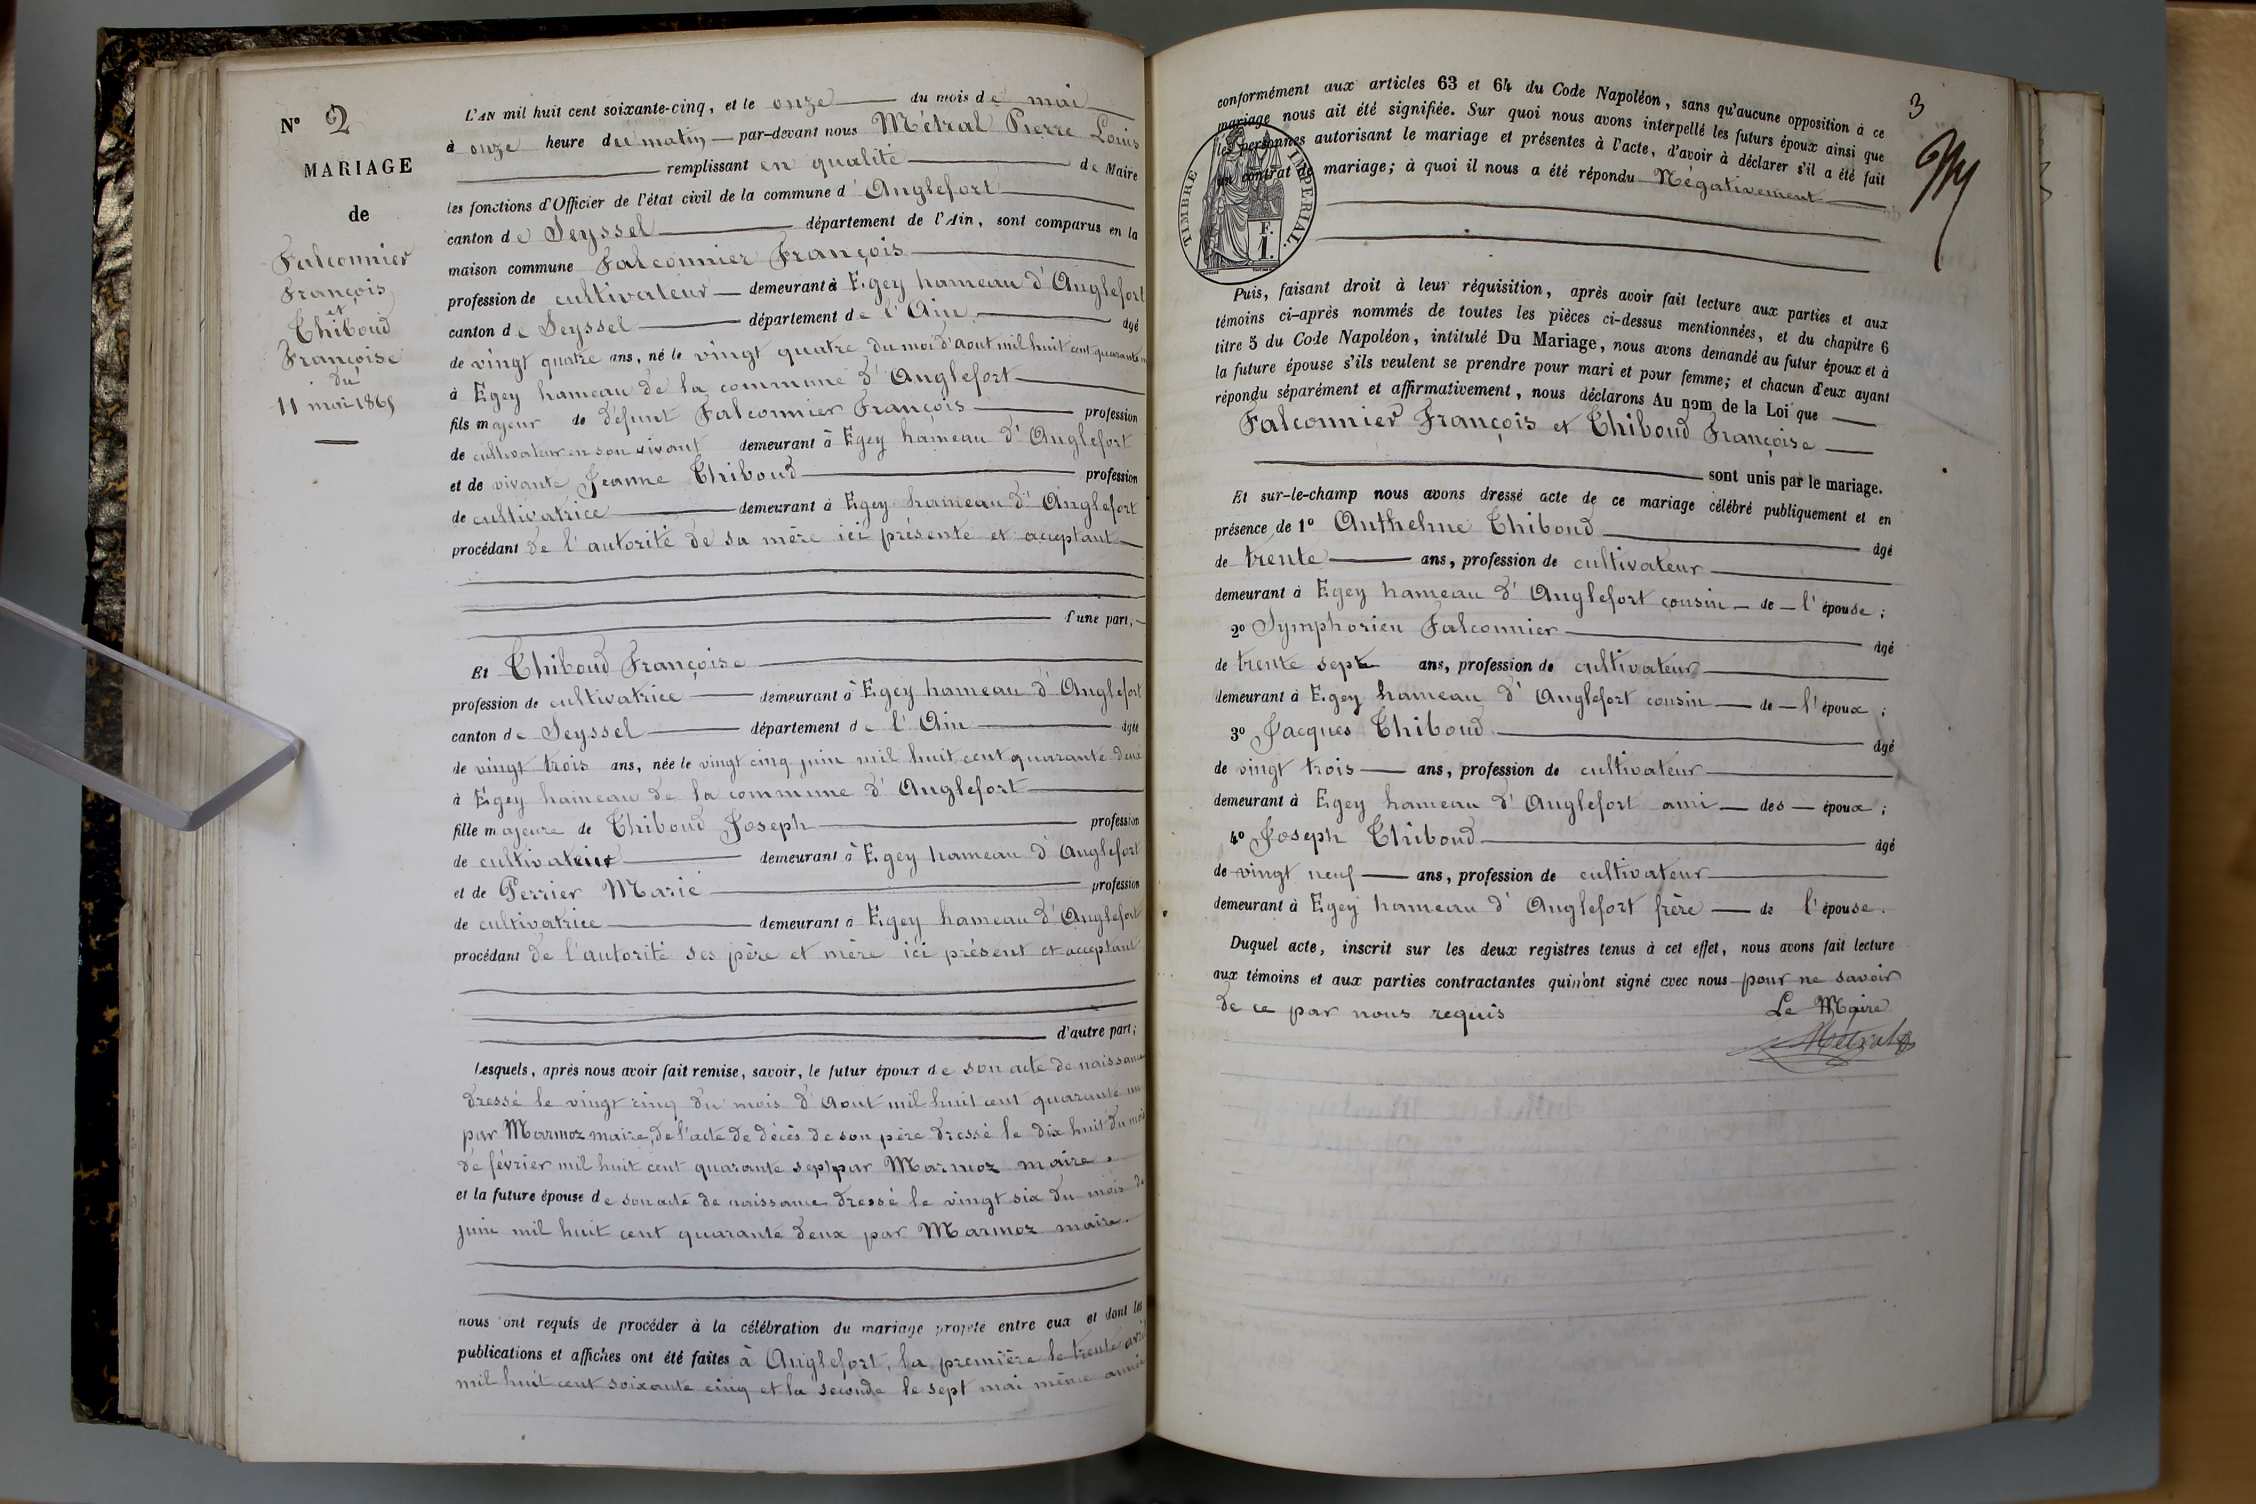 N° 2
MARIAGE
de
Falconnier
François
et
Thiboud
Françoise
du
11 mai 1865
L'AN mil huit cent soixante-cinq, et le onze du mois de mai
à onze heure du matin par-devant nous Métral Pierre Louis
remplissant en qualité de Maire
les fonctions d'Officier de l'état civil de la commune d'Anglefort
canton de Seyssel département de l'Ain, sont comparus en la
maison commune Falconnier François
profession de cultivateur demeurant à Egey hameau d'Anglefort
canton de Seyssel département de l'Ain âgé
de vingt quatre ans, né le vingt quatre du moi d'aout mil huit cent quarante un
à Egey hameau de la commune d'Anglefort
fils majeur de défunt Falconnier François profession
de cultivateur en son vivant demeurant à Egey hameau d'Anglefort
et de vivante Jeanne Thiboud profession
de cultivatrice demeurant à Egey hameau d'Anglefort
procédant de l'autorité de sa mère ici présente et acceptant
d'une part,
Et Thiboud Françoise
profession de cultivatrice demeurant à Egey hameau d'Anglefort
canton de Seyssel département de l'Ain âgée
de vingt trois ans, née le vingt cinq juin mil huit cent quarante deux
à Egey hameau de la commune d'Anglefort
fille majeure de Thiboud Joseph profession
de cultivateur demeurant à Egey hameau d'Anglefort
et de Perrier Marie profession
de cultivatrice demeurant à Egey hameau d'Anglefort
procédant de l'autorité ses père et mère ici présent et acceptant
d'autre part;
Lesquels, après nous avoir fait remise, savoir, le futur époux de son acte de naissance
dressé le vingt cinq du mois d'aout mil huit cent quarante un
par Marmoz maire, de l'acte de décès de son père dressé le dix huit du mois
de février mil huit cent quarante sept par Marmoz maire.
et la future épouse de son acte de naissance dressé le vingt six du mois de
juin mil huit cent quarante deux par Marmoz maire.
nous ont requis de procéder à la célébration du mariage projeté entre eux et dont les
publications et affiches ont été faites à Anglefort, la première le trente avril
mil huit cent soixante cinq et la seconde le sept mai même année
3
conformément aux articles 63 et 64 du Code Napoléon, sans qu'aucune opposition à ce
mariage nous ait été signifiée. Sur quoi nous avons interpellé les futurs époux ainsi que
les personnes autorisant le mariage et présentes à l'acte, d'avoir à déclarer s'il a été fait
un contrat de mariage; à quoi il nous a été répondu Négativement
TIMBRE IMPERIAL.
1. F.
Puis, faisant droit à leur réquisition, après avoir fait lecture aux parties et aux
témoins ci-après nommés de toutes les pièces ci-dessus mentionnées, et du chapitre 6
titre 5 du Code Napoléon, intitulé Du Mariage, nous avons demandé au futur époux et à
la future épouse s'ils veulent se prendre pour mari et pour femme; et chacun d'eux ayant
répondu séparément et affirmativement, nous déclarons Au nom de la Loi que
Falconnier François et Thiboud Françoise
sont unis par le mariage.
Et sur-le-champ nous avons dressé acte de ce mariage célébré publiquement et en
présence de 1° Anthelme Thiboud âgé
de trente ans, profession de cultivateur
demeurant à Egey hameau d'Anglefort cousin de l'épouse;
2° Symphorien Falconnier âgé
de trente sept ans, profession de cultivateur
demeurant à Egey hameau d'Anglefort cousin de l'époux;
3° Jacques Thiboud âgé
de vingt trois ans, profession de cultivateur
demeurant à Egey hameau d'Anglefort ami des époux;
4° Joseph Thiboud âgé
de vingt neuf ans, profession de cultivateur
demeurant à Egey hameau d'Anglefort frère de l'épouse.
Duquel acte, inscrit sur les deux registres tenus à cet effet, nous avons fait lecture
aux témoins et aux parties contractantes qui n'ont signé avec nous pour ne savoir
de ce par nous requis Le Maire
Métral